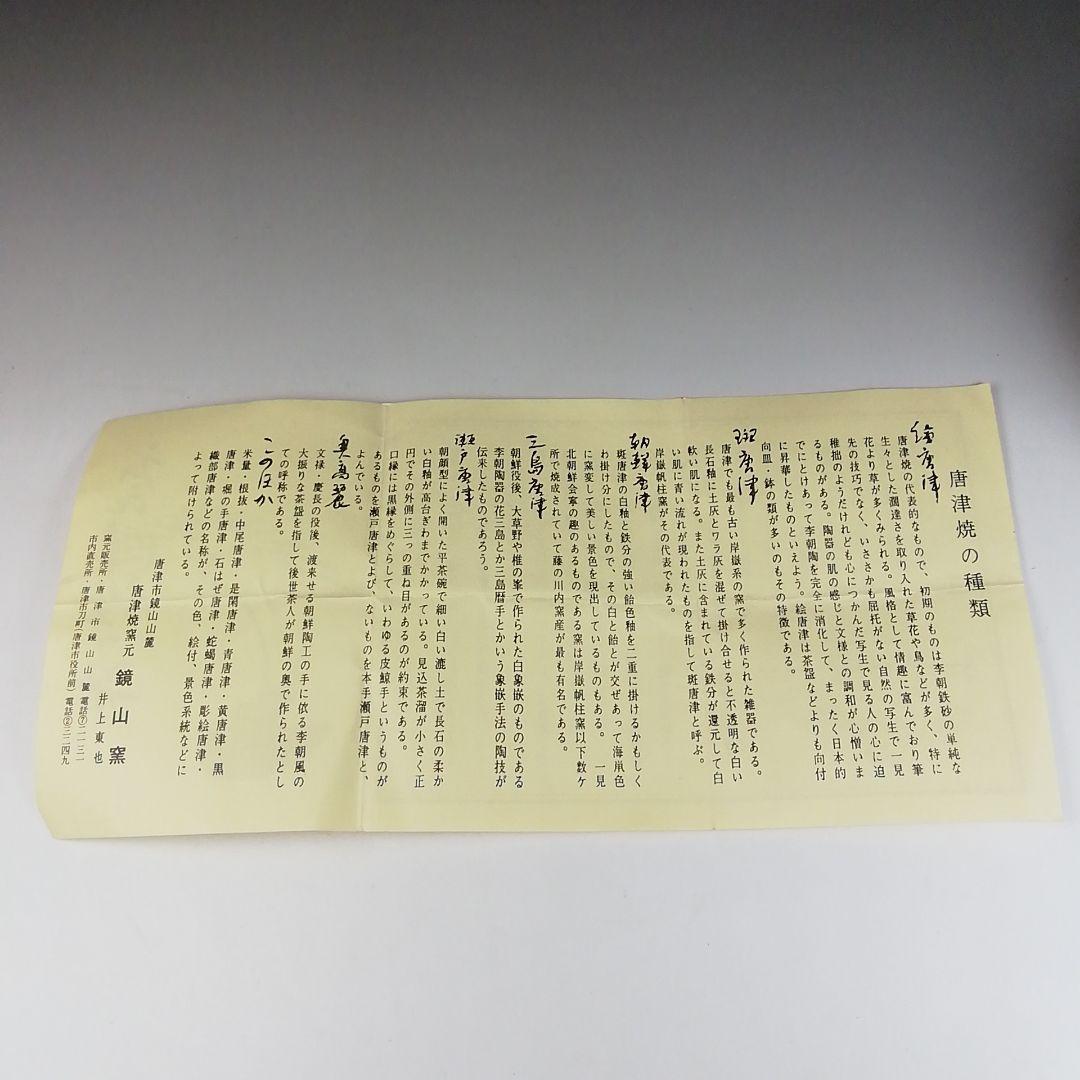 唐津焼の種類
絵唐津
唐津焼の代表的なもので、初期のものは李朝鉄砂の単純な
生々とした潤達さを取り入れた草花や鳥などが多く、特に
花より草が多くみられる。風格として情趣に富んでおり筆
先の技巧でなく、いささかも屈托がない自然の写生で一見
稚拙のようだけれども心につかんだ写生で見る人の心に迫
るものがある。陶器の肌の感じと文様との調和が心憎いま
でにとけあって李朝陶を完全に消化して、まったく日本的
に昇華したものといえよう。絵唐津は茶盌などよりも向付
向皿・鉢の類が多いのもその特徴である。
斑唐津
唐津でも最も古い岸嶽系の窯で多く作られた雑器である。
長石釉に土灰とワラ灰を混ぜて掛け合せると不透明な白い
軟い肌になる。また土灰に含まれている鉄分が還元して白
い肌に青い流れが現われたものを指して斑唐津と呼ぶ。
岸嶽帆柱窯がその代表である。
朝鮮唐津
斑唐津の白釉と鉄分の強い飴色釉を二重に掛けるかもしく
わ掛け分にしたもので、その白と飴とが交ぜあって海鼡色
に窯変して美しい景色を現出しているものもある。一見
北朝鮮会寧の趣のあるものである窯は岸嶽帆柱窯以下数ヶ
所で焼成されていて藤の川内窯産が最も有名である。
三島唐津
朝鮮役後、大草野や椎の峯で作られた白象嵌のものである
李朝陶器の花三島とか三島暦手とかいう象嵌手法の陶技が
伝来したものであろう。
瀬戸唐津
朝顔型によく開いた平茶碗で細い白い漉し土で長石の柔か
い白釉が高台ぎわまでかかっている。見込茶溜が小さく正
円でその外側に三っの重ね目があるのが約束である。
口縁には黒縁をめぐらして、いわゆる皮鯨手というものが
あるものを瀬戸唐津とよび、ないものを本手瀬戸唐津と、
よんでいる。
奥高麗
文禄・慶長の役後、渡来せる朝鮮陶工の手に依る李朝風の
大振りな茶盌を指して後世茶人が朝鮮の奥で作られたとし
ての呼称である。
このほか
米量・根抜・中尾唐津・是閑唐津・青唐津・黄唐津・黒
唐津・堀の手唐津・石はぜ唐津・蛇蝎唐津・彫絵唐津・
織部唐津などの名称が、その色、絵付、景色系統などに
よって附けられている。
唐津市鏡山山麓
唐津焼窯元 鏡山窯
井上東也
窯元販売所・唐津市鏡山山麓 電話⑦二一三一
市内直売所・唐津市刀町(唐津市役所前) 電話②三一四九